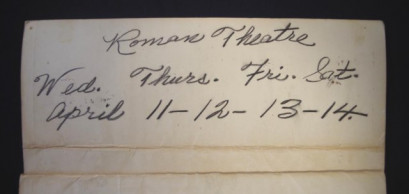 Roman Theatre
Wed. Thurs. Fri. Sat.
April 11-12-13-14.